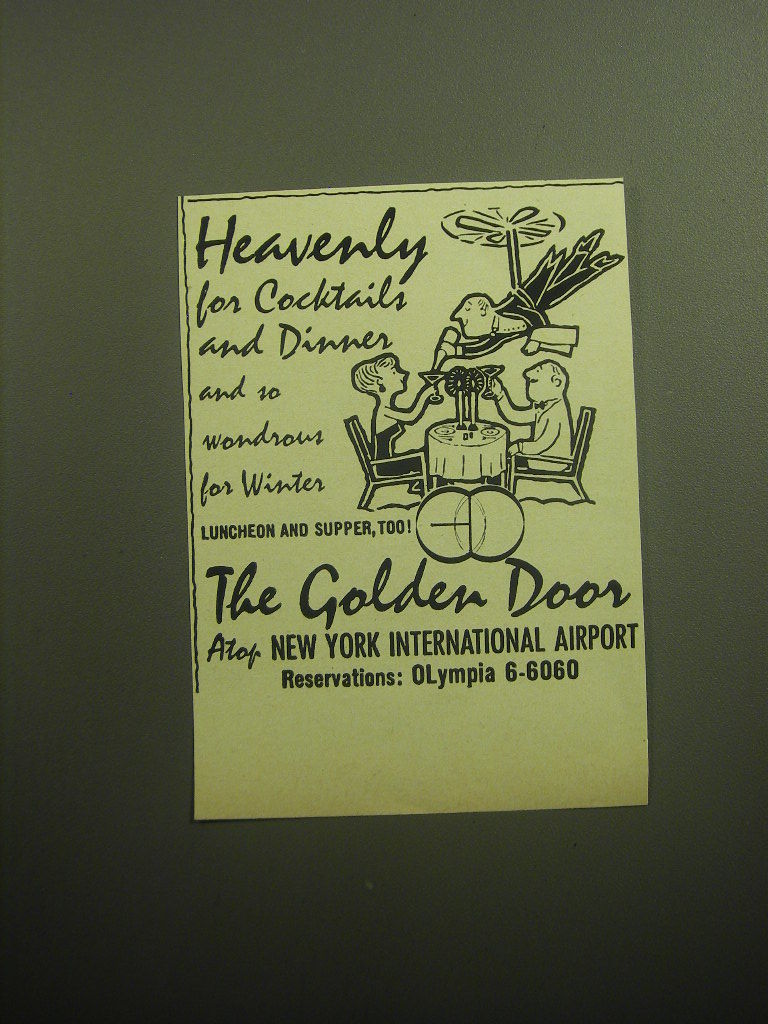 Heavenly
for Cocktails
and Dinner
and so
wondrous
for Winter
LUNCHEON AND SUPPER, TOO!
The Golden Door
Atop NEW YORK INTERNATIONAL AIRPORT
Reservations: OLympia 6-6060